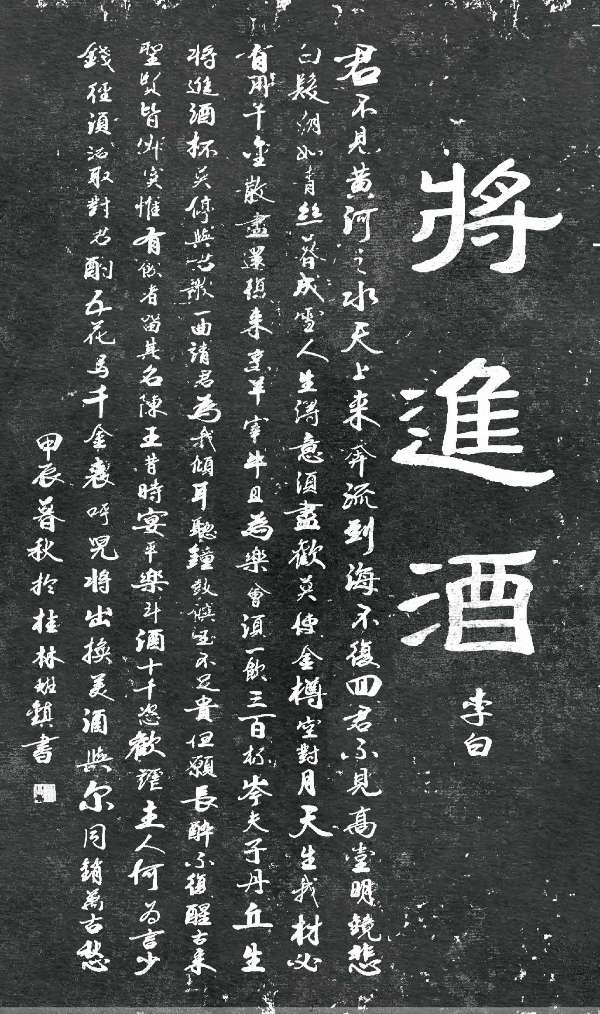 將進酒
李白
君不見黃河之水天上來奔流到海不復回君不見高堂明鏡悲
白髮朝如青絲暮成雪人生得意須盡歡莫使金樽空對月天生我材必
有用千金散盡還復來烹羊宰牛且為樂會須一飲三百杯岑夫子丹丘生
將進酒杯莫停與君歌一曲請君為我傾耳聽鐘鼓饌玉不足貴但願長醉不復醒古來
聖賢皆寂寞惟有飲者留其名陳王昔時宴平樂斗酒十千恣歡謔主人何為言少
錢徑須沽取對君酌五花馬千金裘呼兒將出換美酒與尔同銷萬古愁
甲辰暮秋於桂林鎮書